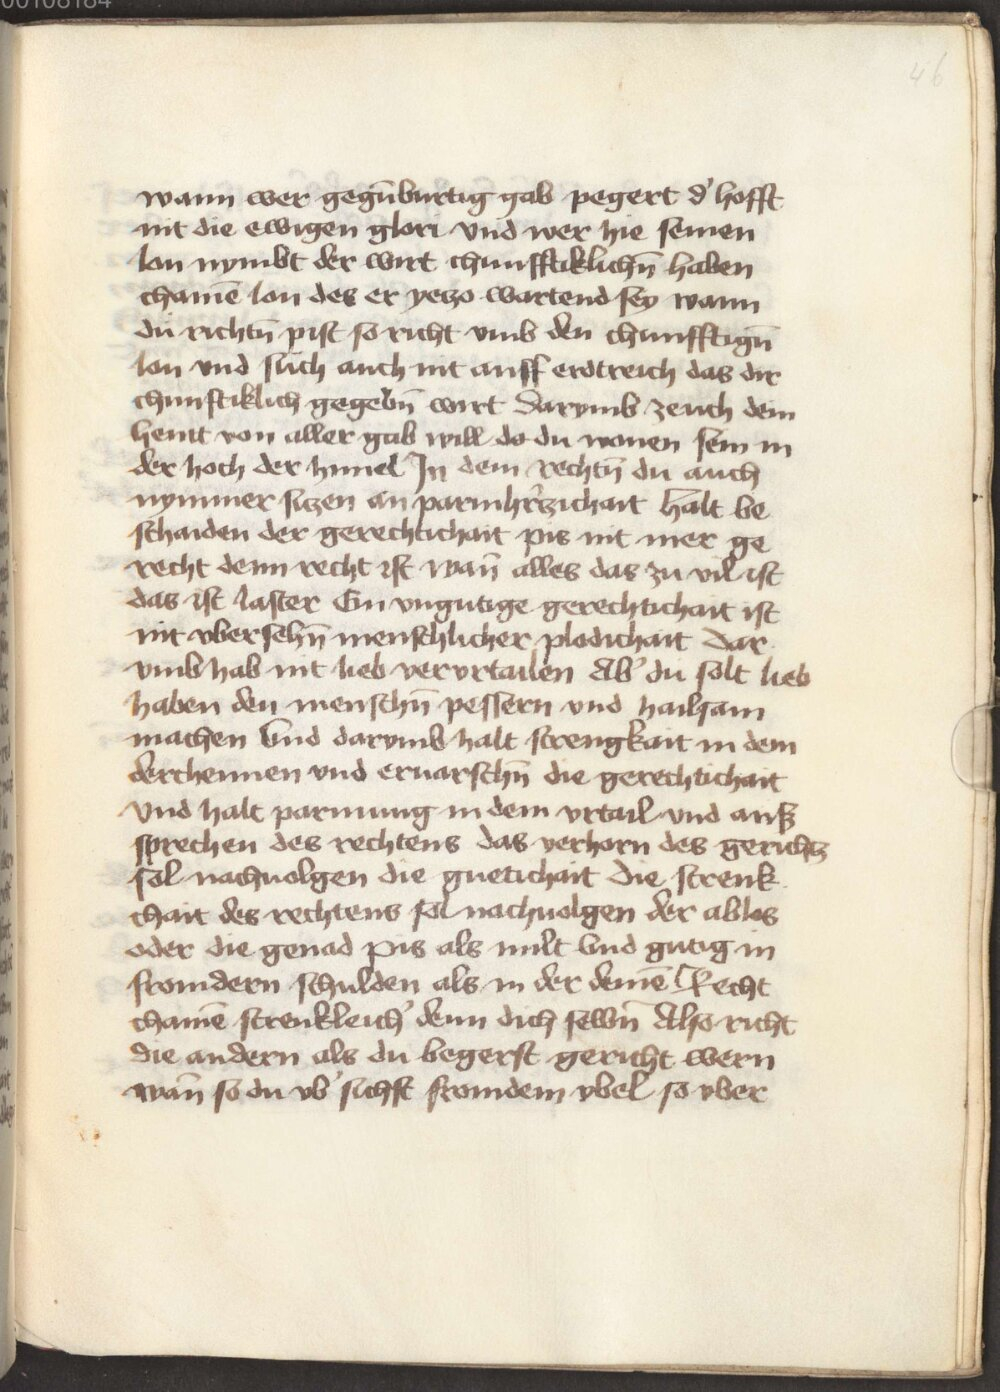 00108184
46
wann wer gegūburtig gab pegert d' hofft
nit die ewigen glori vnd wer hie seinen
lon nymbt der wirt chunfftiklichn̄ haben
chainē lon des er yeczo wartend sey wann
du richtn̄ pist so richt vmb den chunfftign̄
lon vnd such auch nit auff erdtreich das dir
chunftiklich gegebn̄ wirt Darumb zeuch dein
hentt von aller gab will do du wonen sein in
der hoch der himel In dem rechtn̄ du auch
nymmer siczen an parmhr̄czichait halt be
schaiden der gerechtichait pis nit mer ge
recht denn recht ist wan̄ alles das zu vil ist
das ist laster Ein vngutige gerechtichait ist
nit vbersehn̄ menschlicher plodichait Dar
vmb hab nit lieb vervrtailen Ab' du solt lieb
haben den menschn̄ pessern vnd hailsam
machen Vnd darumb halt strengkait in dem
derchennen vnd eruarschn̄ die gerechtichait
vnd halt parmung in dem vrtail vnd auß
sprechen des rechtens das verhorn des gerichtz
sol nachuolgen die guetichait Die strenk
chait des rechtens sol nachuolgen der ablos
oder die genad pis als milt vnd gutig in
fromdern schulden als in der deinē Recht
chainē strenkleich' denn dich selbn̄ Also richt
die andern als du begerst gericht wern
wan̄ so du vb' sichst fromdem vbel so vber